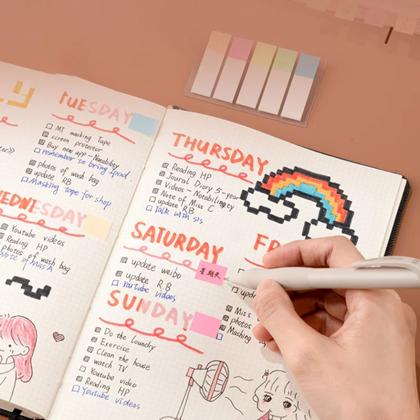 TUESDAY
MT masking Tape
screen protector
Buy new app - Notability
remember to bring ipad
photos of wash bag
update RB
Masking Tape for shop
WEDNESDAY
Youtube videos
Reading HP
photos of wash bag
THURSDAY
Reading HP
Journal Diary 5-year
Videos - Notability
Note of Miss C
update RB
Talk with sis
SATURDAY
update weibo
update RB
Youtube videos
星期天
SUNDAY
Do the laundry
Exercise
Clean the house
watch TV
Youtube video
Reading HP
Youtube videos
FR
Miss
photos
Mashing